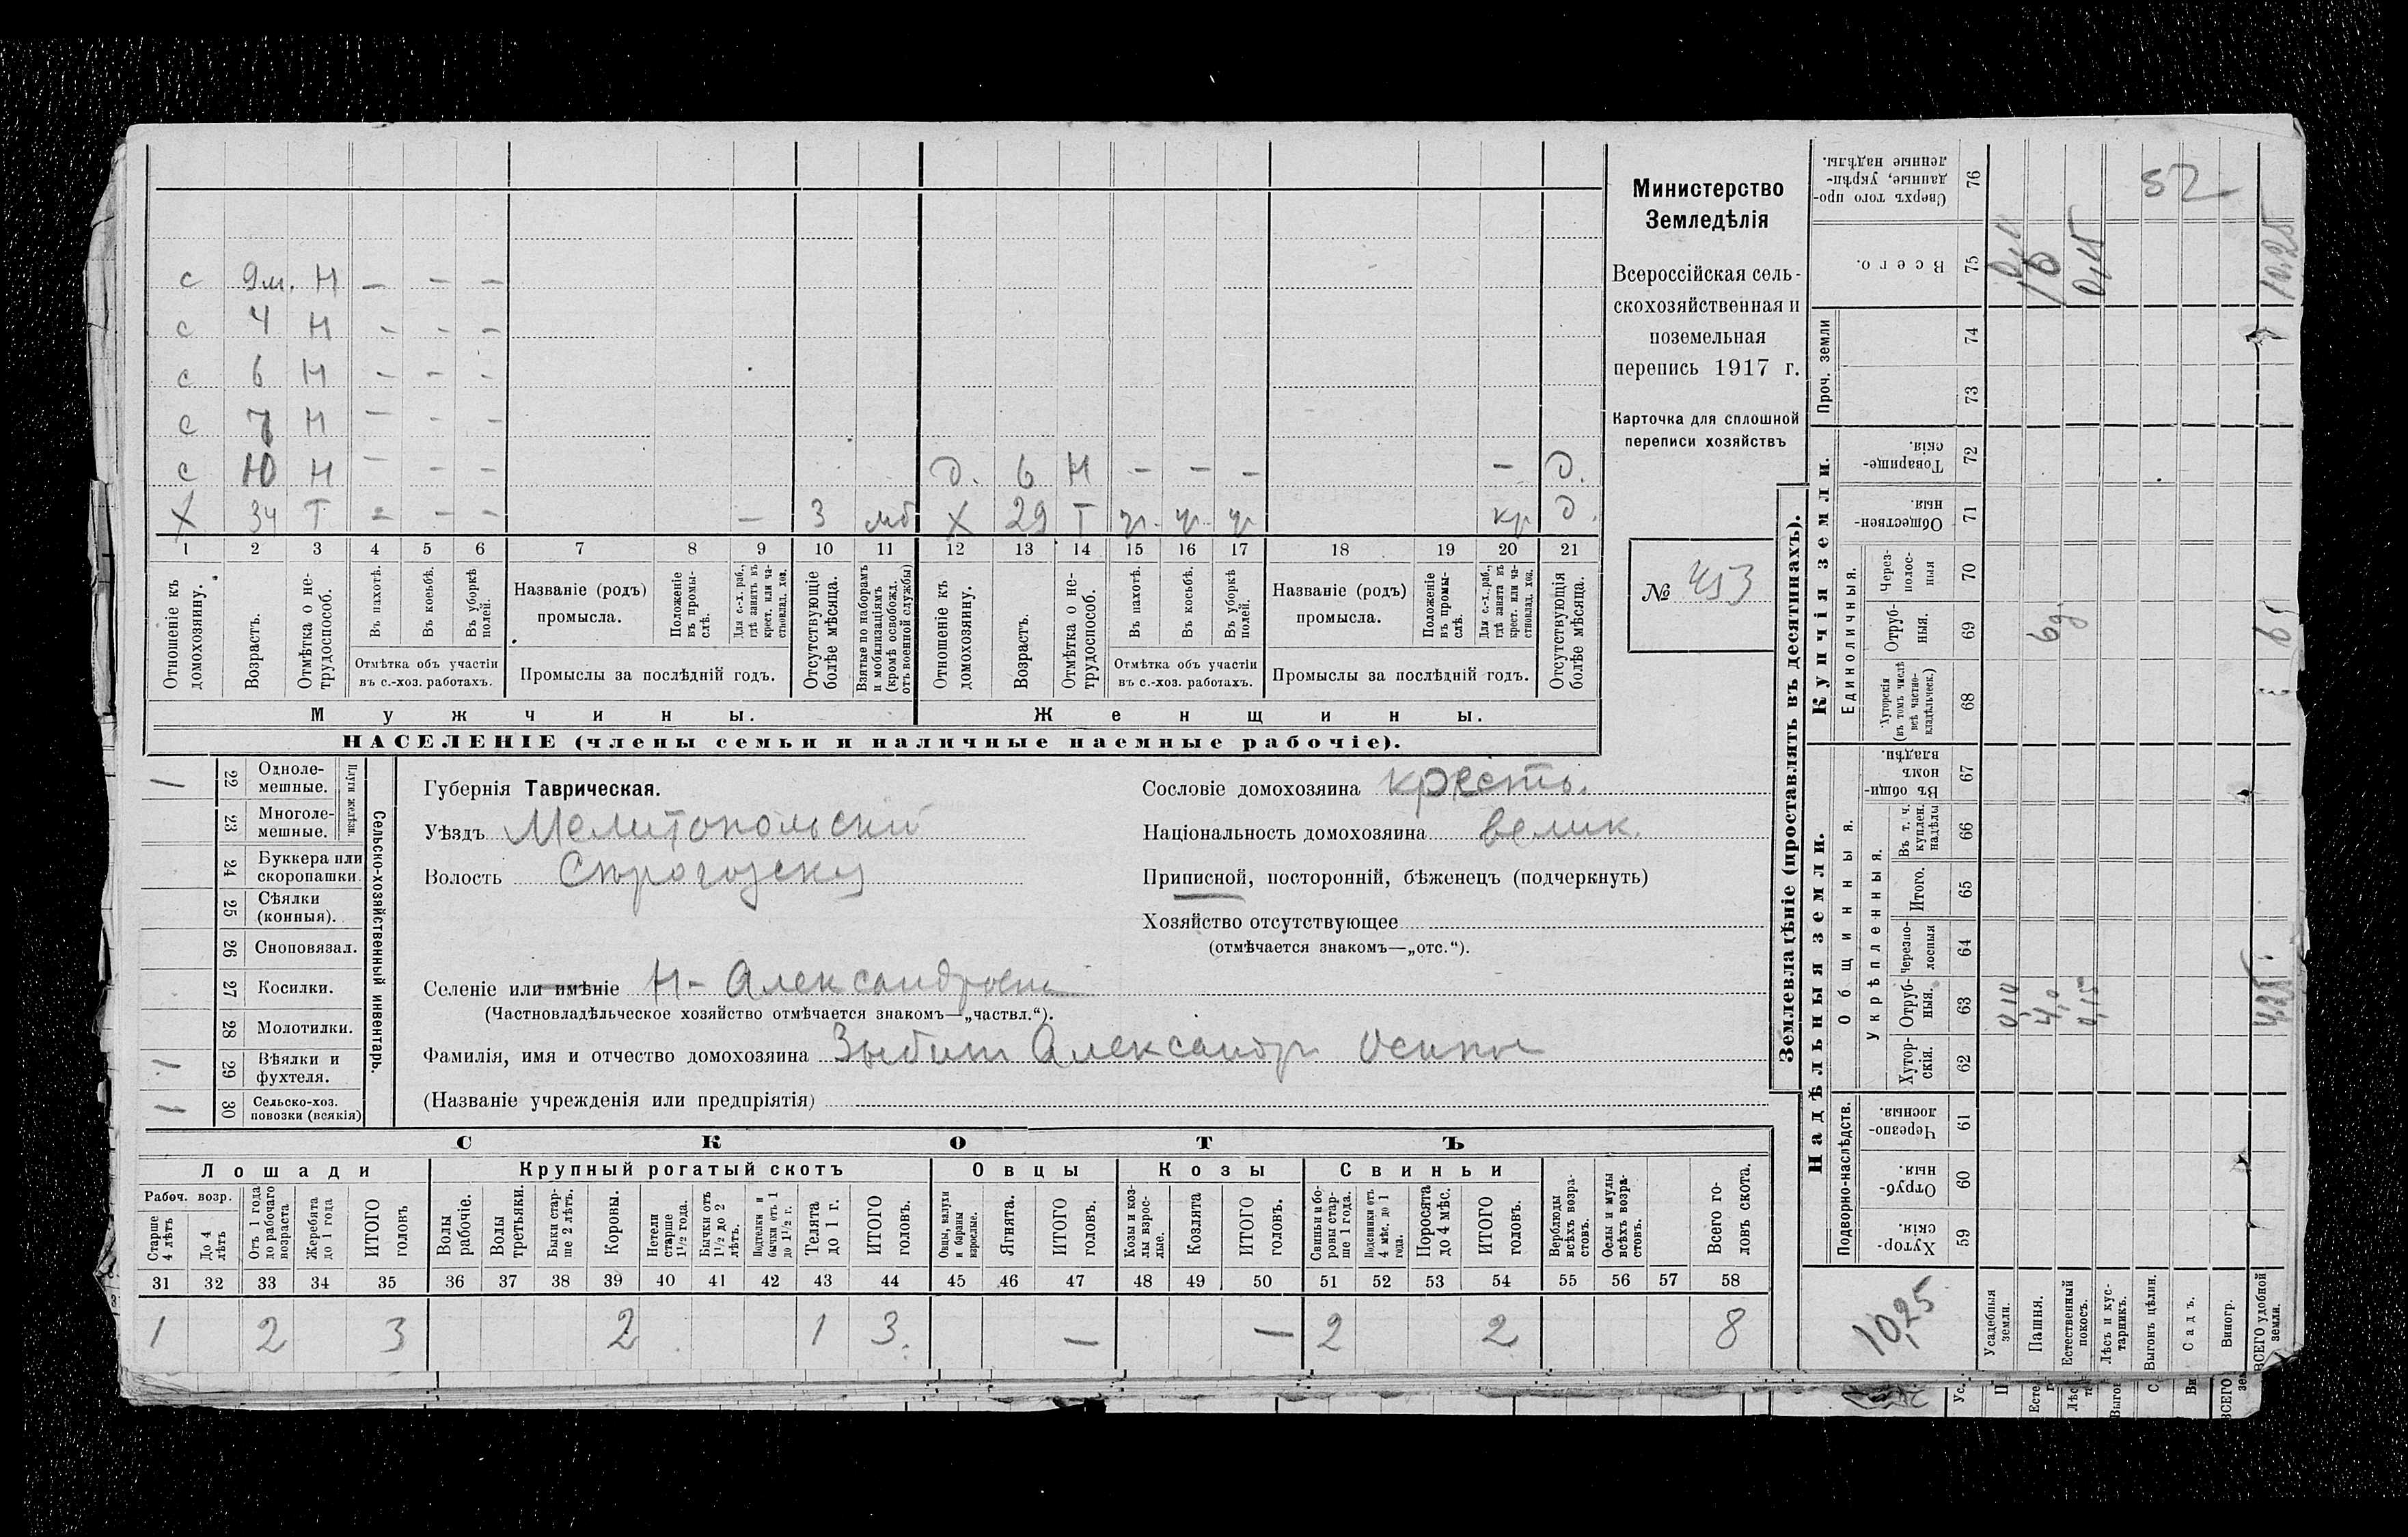 с 9м. Н – – –
с 4 Н – – –
с 6 Н – – –
с 7 Н – – –
с 10 Н – – – д. 6 Н – – – – д.
Х 34 Т – – – – 3 мб Х 29 Т ч. ч. ч кр д.
1 2 3 4 5 6 7 8 9 10 11 12 13 14 15 16 17 18 19 20 21
Отношеніе къ домохозяину.
Возрастъ.
Отмѣтка о нетрудоспособ.
Въ пахотѣ.
Въ косьбѣ.
Въ уборкѣ полей.
Отмѣтка объ участіи
въ с.-хоз. работахъ.
Названіе (родъ)
промысла.
Положеніе въ промыслѣ.
Для с.-х. раб., гдѣ занятъ въ крест. или частновлад. хоз.
Промыслы за послѣдній годъ.
Отсутствующіе болѣе мѣсяца.
Взятые по наборамъ и мобилизаціямъ (кромѣ освобожд. отъ военной службы)
Отношеніе къ домохозяину.
Возрастъ.
Отмѣтка о нетрудоспособ.
Въ пахотѣ.
Въ косьбѣ.
Въ уборкѣ полей.
Отмѣтка объ участіи
въ с.-хоз. работахъ.
Названіе (родъ)
промысла.
Положеніе въ промыслѣ.
Для с.-х. раб., гдѣ занята въ крест. или частновлад. хоз.
Промыслы за послѣдній годъ.
Отсутствующія болѣе мѣсяца.
Мужчины. Женщины.
НАСЕЛЕНІЕ (члены семьи и наличные наемные рабочіе).
Министерство
Земледѣлія
Всероссійская сель-
скохозяйственная и
поземельная
перепись 1917 г.
Карточка для сплошной
переписи хозяйствъ
№ 453
1 22 Одноле-
мешные.
23 Многоле-
мешные.
Плуги желѣзн.
24 Буккера или
скоропашки.
25 Сѣялки
(конныя).
26 Сноповязал.
27 Косилки.
28 Молотилки.
1 29 Вѣялки и
фухтеля.
1 30 Сельско-хоз.
повозки (всякія)
Сельско-хозяйственный инвентарь.
Губернія Таврическая.
Уѣздъ Мелитопольскій
Волость
Сословіе домохозяина крестъ.
Національность домохозяина велик.
Приписной, посторонній, бѣженецъ (подчеркнуть)
Хозяйство отсутствующее
(отмѣчается знакомъ—„отс.“).
Селеніе или имѣніе Н-Александровка
(Частновладѣльческое хозяйство отмѣчается знакомъ—„частвл.“).
Фамилія, имя и отчество домохозяина Александръ Осипов
(Названіе учрежденія или предпріятія)
СКОТЪ
Лошади Крупный рогатый скотъ Овцы Козы Свиньи
Рабоч. возр.
Старше 4 лѣтъ
До 4 лѣтъ
Отъ 1 года до рабочаго возраста
Жеребята до 1 года
ИТОГО головъ
Волы рабочіе.
Волы третьяки.
Быки старше 2 лѣтъ.
Коровы.
Нетели старше 1½ года.
Бычки отъ 1½ до 2 лѣтъ.
Подтелки и бычки отъ 1 до 1½ г.
Телята до 1 г.
ИТОГО головъ.
Овцы, валухи и бараны взрослые.
Ягнята.
ИТОГО головъ.
Козы и козлы взрослые.
Козлята
ИТОГО головъ.
Свиньи и боровы старше 1 года.
Подсвинки отъ 4 мѣс. до 1 года.
Поросята до 4 мѣс.
ИТОГО головъ.
Верблюды всѣхъ возрастовъ.
Ослы и мулы всѣхъ возрастовъ.
Всего головъ скота.
31 32 33 34 35 36 37 38 39 40 41 42 43 44 45 46 47 48 49 50 51 52 53 54 55 56 57 58
1 2 3 2 1 3. – – 2 2 8
Землевладѣніе (проставлять въ десятинахъ).
Надѣльныя земли. Купчія земли. Проч. земли
Подворно-наслѣдств.
Общинныя.
Укрѣпленныя.
Единоличныя.
Хуторскія 59
Отрубныя. 60
Черезполосныя. 61
Хуторскія. 62
Отрубныя. 63
Черезполосныя 64
Итого. 65
Въ т. ч. куплен. надѣлы 66
Въ общинномъ владѣн. 67
Хуторскія (въ томъ числѣ всѣ частновладѣльческ.) 68
Отрубныя. 69
Черезполосныя 70
Общественныя. 71
Товарищескія. 72
73
74
Всего. 75
Сверхъ того проданные, укрѣпленные надѣлы. 76
10,25
Усадебныя земли.
Пашня.
Естественный покосъ.
Лѣсъ и кустарникъ.
Выгонъ цѣлин.
Садъ.
Виногр.
ВСЕГО удобной земли.
0,10
4,0
0,15
4,25
6д.
6
10
0,15
10,25
52